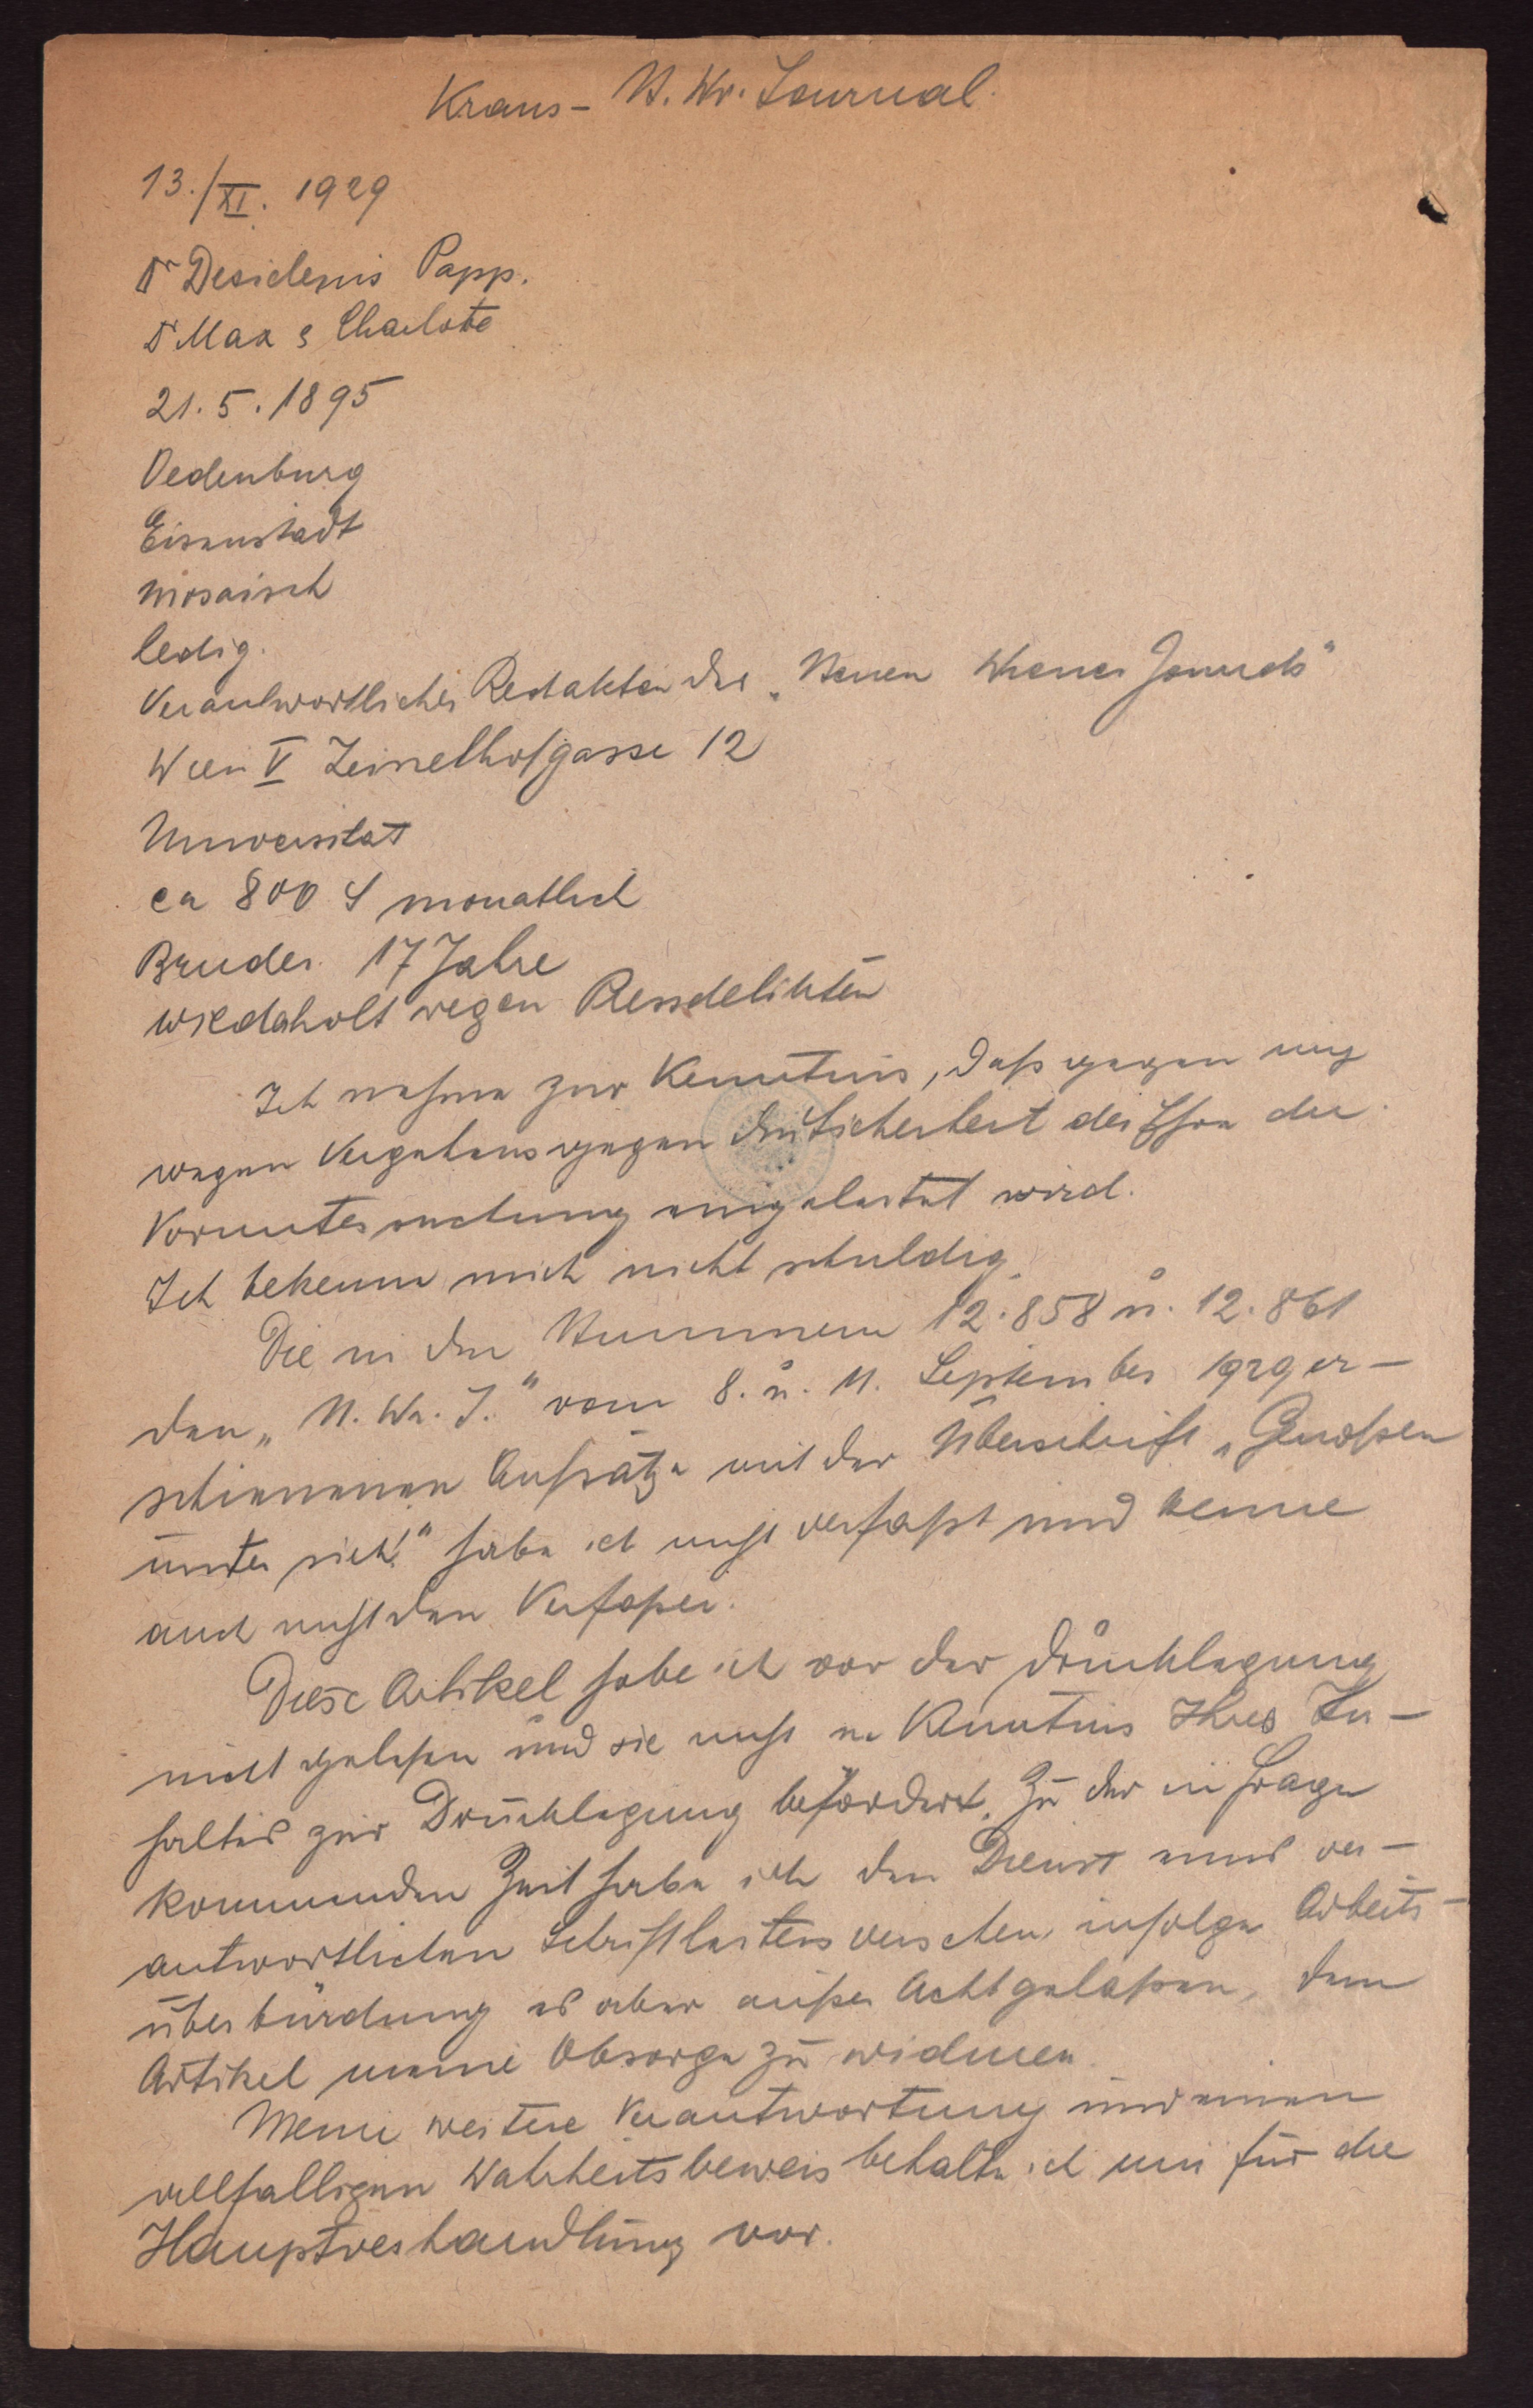 Kraus – N. Wr. Journal.
13./XI. 1929
Dr Desiderius Papp.
Dr Max & Charlotte
21. 5. 1895
Oedenburg
Eisenstadt
mosaisch
ledig.
Verantwortlicher Redakteur des „Neuen Wiener Journals"
Wien V Zeinelhofgasse 12
Universität
ca 800 S monatlich
Bruder 17 Jahre
wiederholt wegen Pressdelikten
Ich nehme zur Kenntnis, daß gegen mich
wegen Vergehens gegen die Sicherheit der Ehre die
Voruntersuchung eingeleitet wird.
Ich bekenne mich nicht schuldig.
Die in den Nummern 12.858 u. 12.861
des „N. Wr. J." vom 8. u. 11. September 1929 er–
schienenen Aufsätze mit der Überschrift „Genossen
unter sich!" habe ich nicht verfaßt und kenne
auch nicht den Verfasser.
Diese Artikel habe ich vor der Drucklegung
nicht gelesen und sie nicht in Kenntnis Ihres In–
haltes zur Drucklegung befördert. Zu der in Frage
kommenden Zeit habe ich den Dienst eines ver–
antwortlichen Schriftleiters versehen, infolge Arbeits–
überbürdung es aber außer Acht gelaßen, dem
Artikel meine Obsorge zu widmen.
Meine weitere Verantwortung und einen
allfälligen Wahrheitsbeweis behalte ich mir für die
Hauptverhandlung vor.